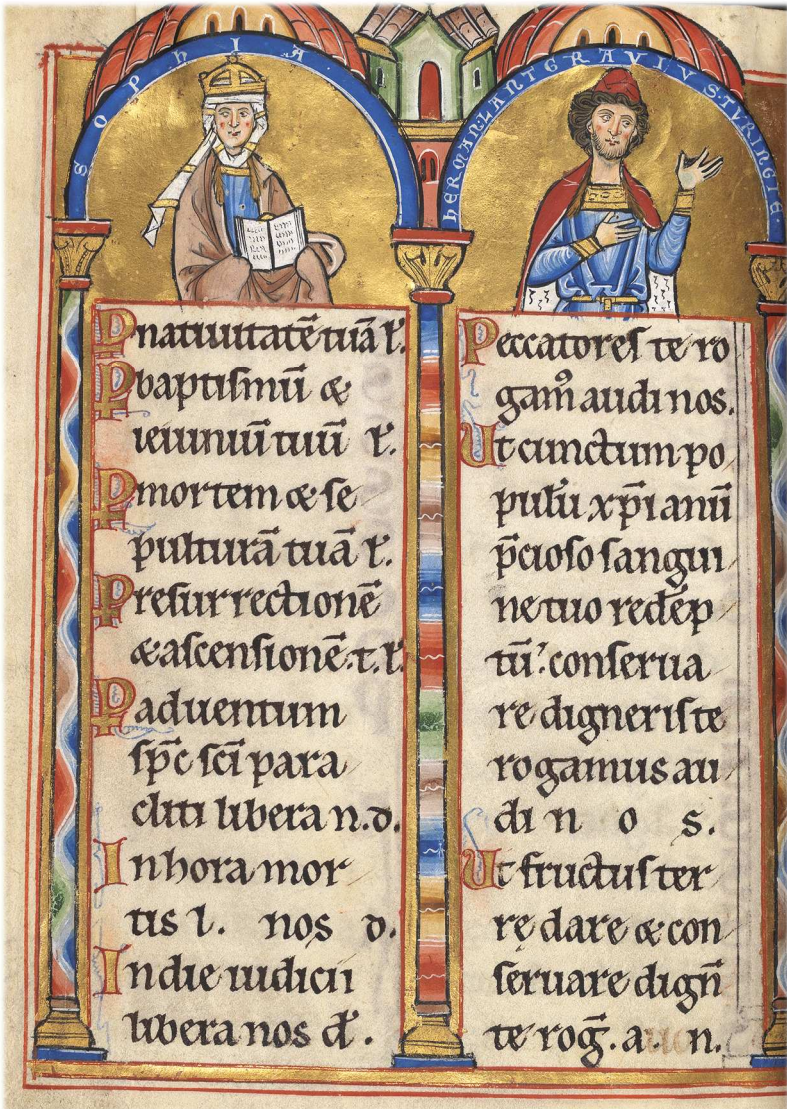 SOPHIA
HERMAN LANTGRAVIVS TVRINGIE
P nativitatē tuā l'.
P baptismū &
ieiuniū tuū l'.
P mortem & se
pulturā tuā l'.
P resurrectionē
& ascensionē .t. l'.
P adventum
sp̄c sc̄i para
cliti libera n. d.
In hora mor
tis l. nos d.
In die iudicii
libera nos d̄.
Peccatores te ro
gam⁹ audi nos.
Ut cunctum po
pulū xp̄ianū
p̄cioso sangui
ne tuo redēp
tū conserva
re digneris te
rogamus au
di nos.
Ut fructus ter
rę dare & con
servare dign̄
te roḡ. a. n.